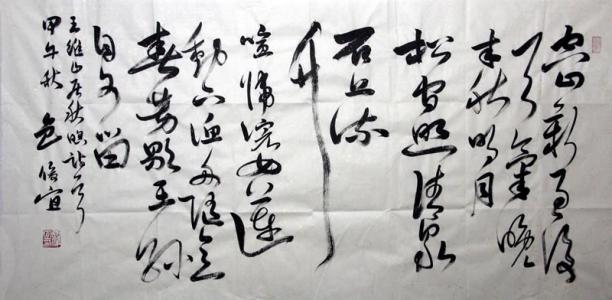 空山新雨後
天氣晚
来秋明月
松間照清泉
石上流
竹
喧歸浣女蓮
動下漁舟隨意
春芳歇王孫
自可留
王維山居秋暝詩一首
甲午秋 俊宜